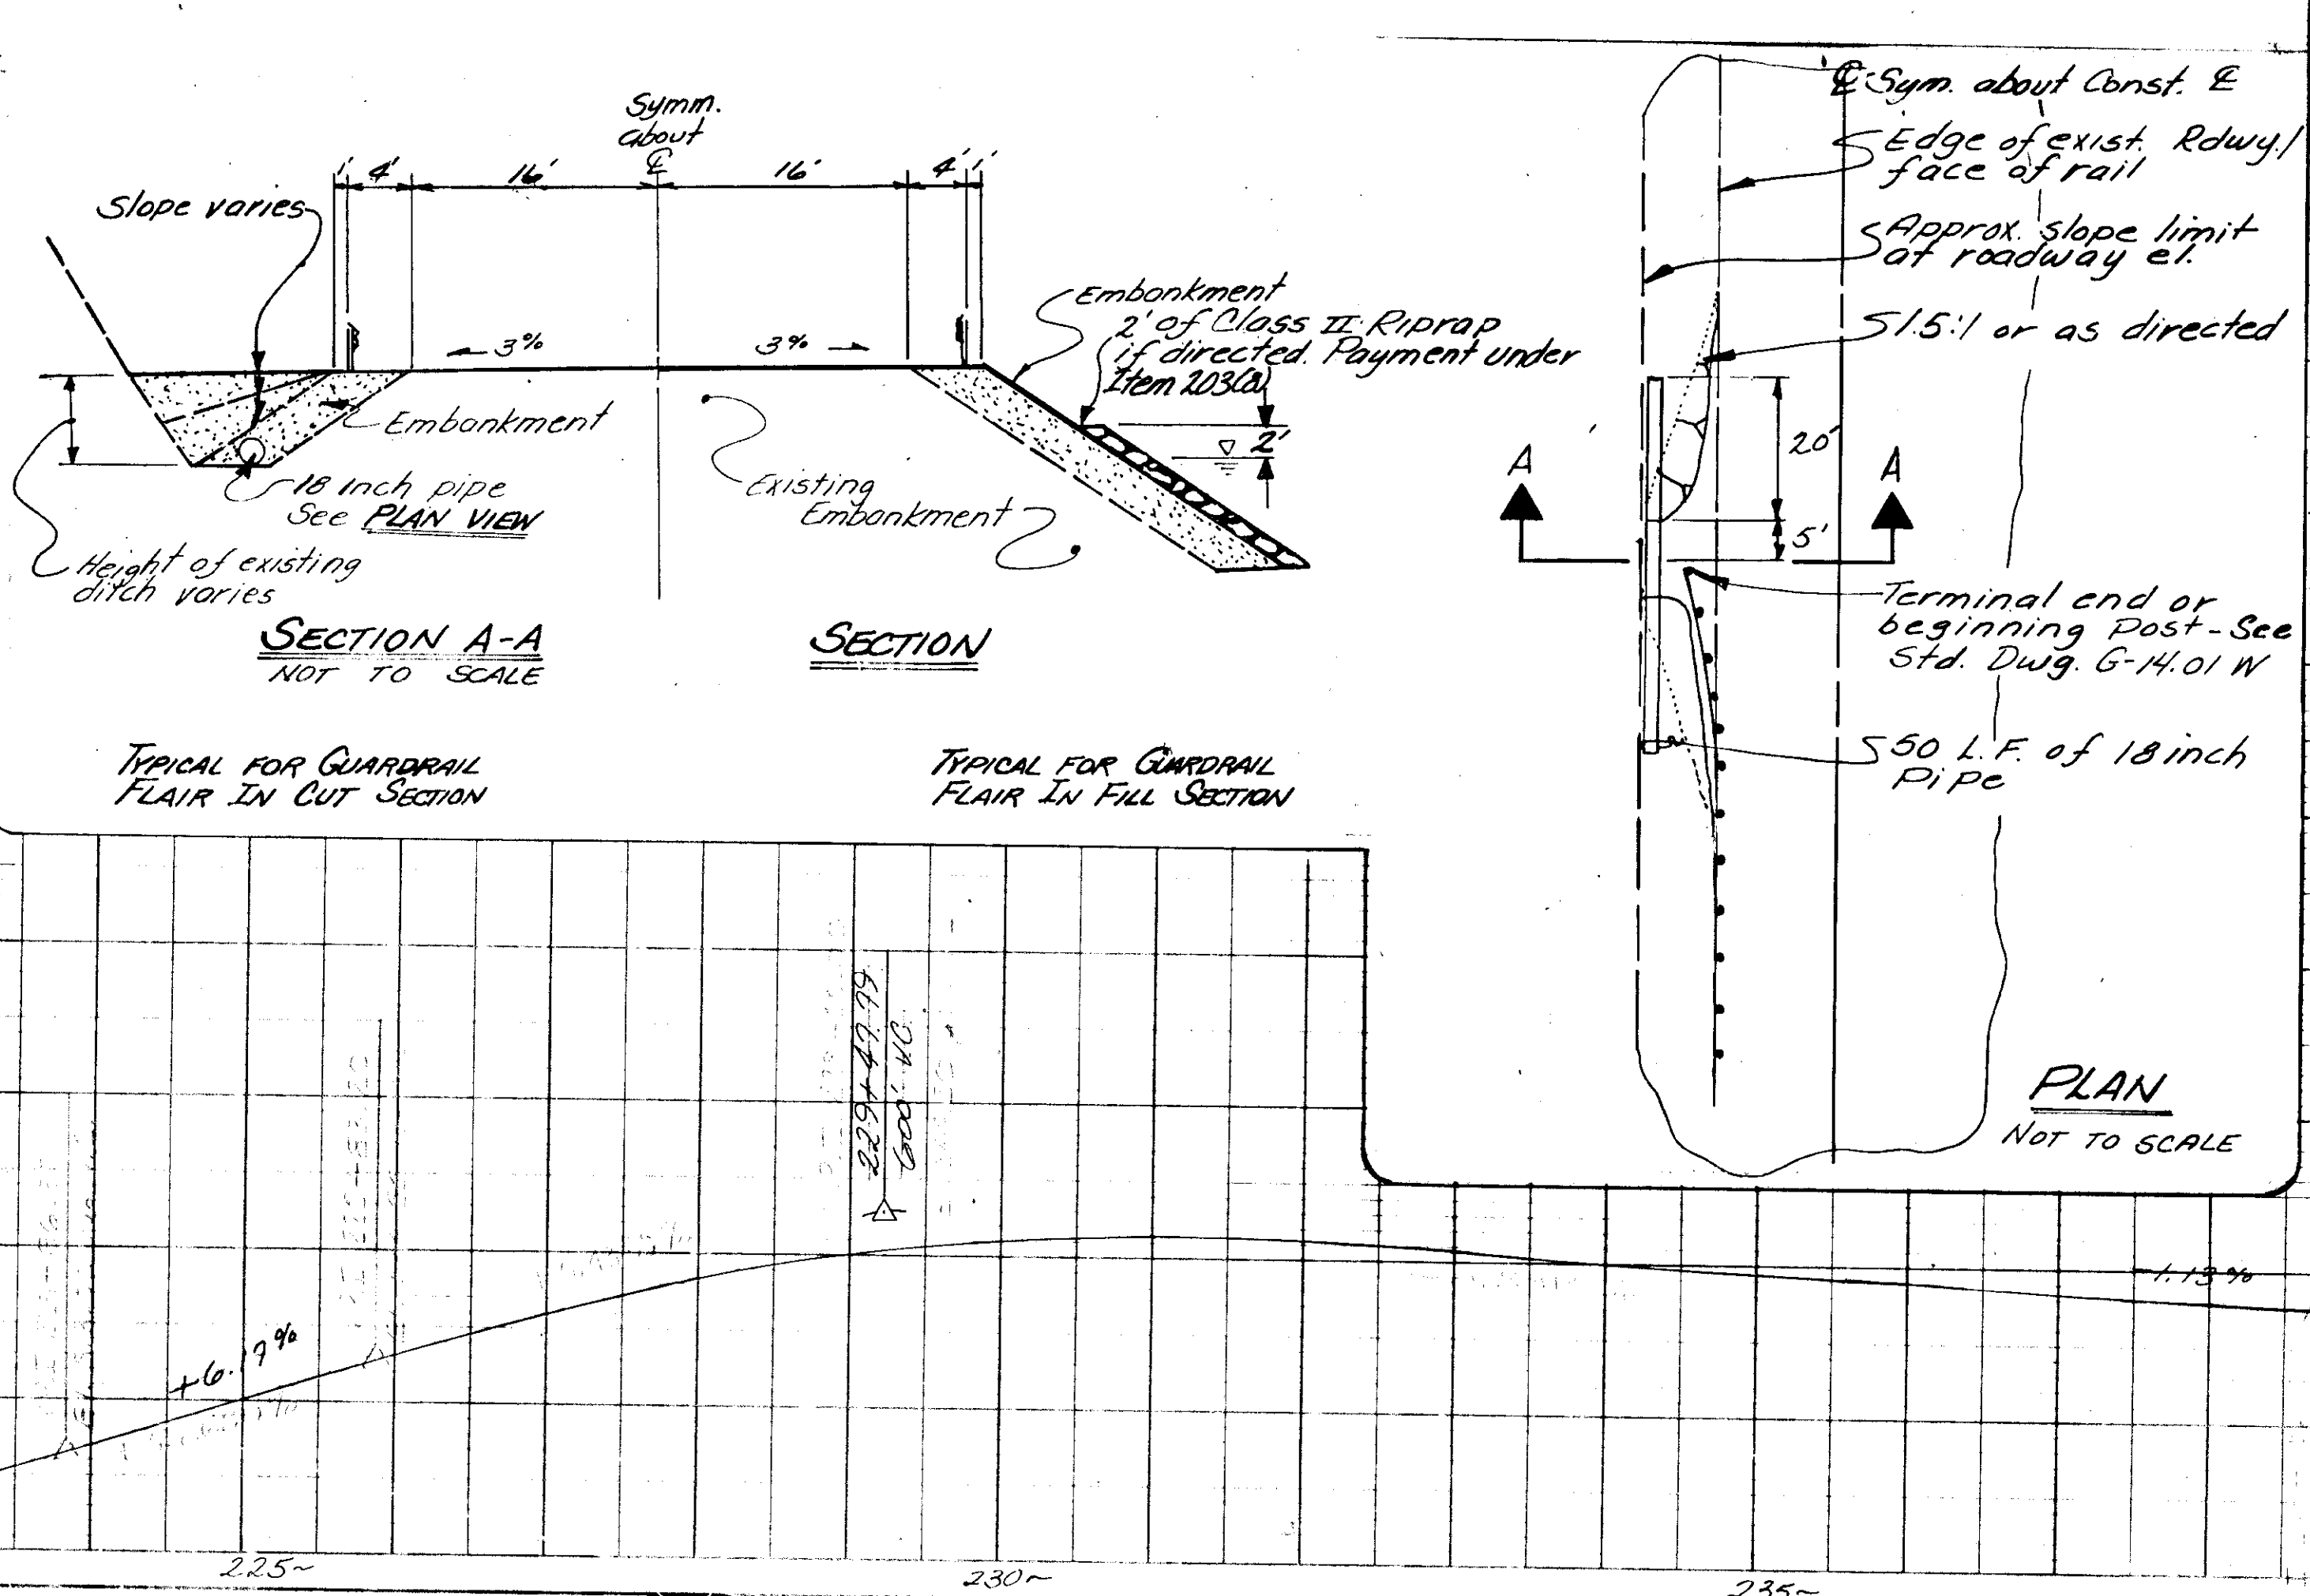 Symm.
about
℄
1' 4' 16' 16' 4' 1'
Slope varies
3% 3%
Embankment
2' of Class II Riprap
if directed. Payment under
Item 203(8)
2'
Embankment
18 Inch pipe
See PLAN VIEW
Existing
Embankment
Height of existing
ditch varies
SECTION A-A
NOT TO SCALE
SECTION
TYPICAL FOR GUARDRAIL
FLAIR IN CUT SECTION
TYPICAL FOR GUARDRAIL
FLAIR IN FILL SECTION
℄ Sym. about Const. ℄
Edge of exist. Rdwy./
face of rail
Approx. slope limit
at roadway el.
1.5:1 or as directed
20'
A A
5'
Terminal end or
beginning Post - See
Std. Dwg. G-14.01 W
50 L.F. of 18 inch
Pipe
PLAN
NOT TO SCALE
229+49.99
600' VC
+6.19%
-1.13%
225
230
235